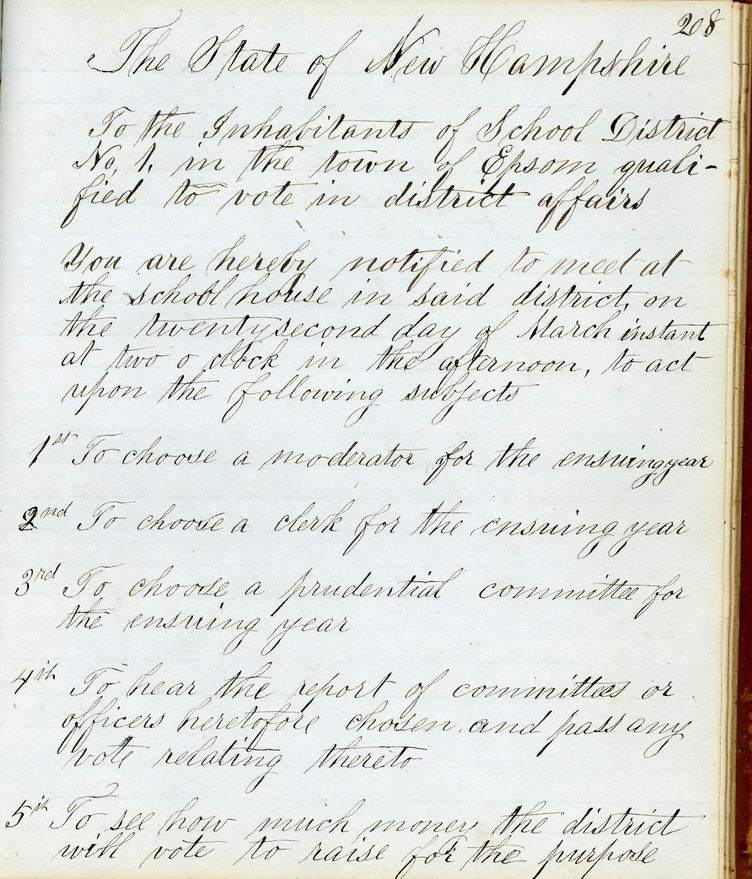 208
The State of New Hampshire
To the Inhabitants of School District
No. 1. in the town of Epsom quali-
fied to vote in district affairs
You are hereby notified to meet at
the school house in said district, on
the twenty second day of March instant
at two o clock in the afternoon, to act
upon the following subjects
1st To choose a moderator for the ensuing year
2nd To choose a clerk for the ensuing year
3rd To choose a prudential committee for
the ensuing year
4th To hear the report of committees or
officers heretofore chosen and pass any
vote relating thereto
5th To see how much money the district
will vote to raise for the purpose